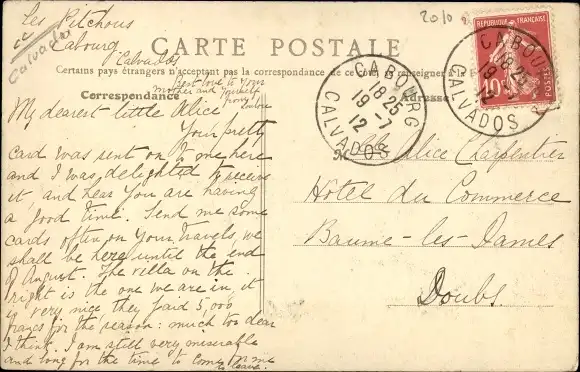 Les Pitchous
Cabourg
Calvados
Calvados
20/0
CARTE POSTALE
Certains pays étrangers n'acceptent pas la correspondance de ce côté, se renseigner à la
Correspondance
Adresse
Best love to your
Mother and yourself
from
My dearest little Alice
Your pretty
card was sent on to me here
and I was delighted to receive
it, and hear you are having
a good time. Send me some
cards often on your travels, we
shall be here until the end
of August. The villa on the
right is the one we are in, it
is very nice they paid 5,000
francs for the season: much too dear
I think. I am still very miserable
and long for the time to come for me
to leave.
REPUBLIQUE FRANÇAISE
10
POSTES
CABOURG
18 25
19 -7
12
CALVADOS
CABOURG
18 25
19 -7
12
CALVADOS
Mlle Alice Charpentier
Hotel du Commerce
Baume-les-Dames
Doubs